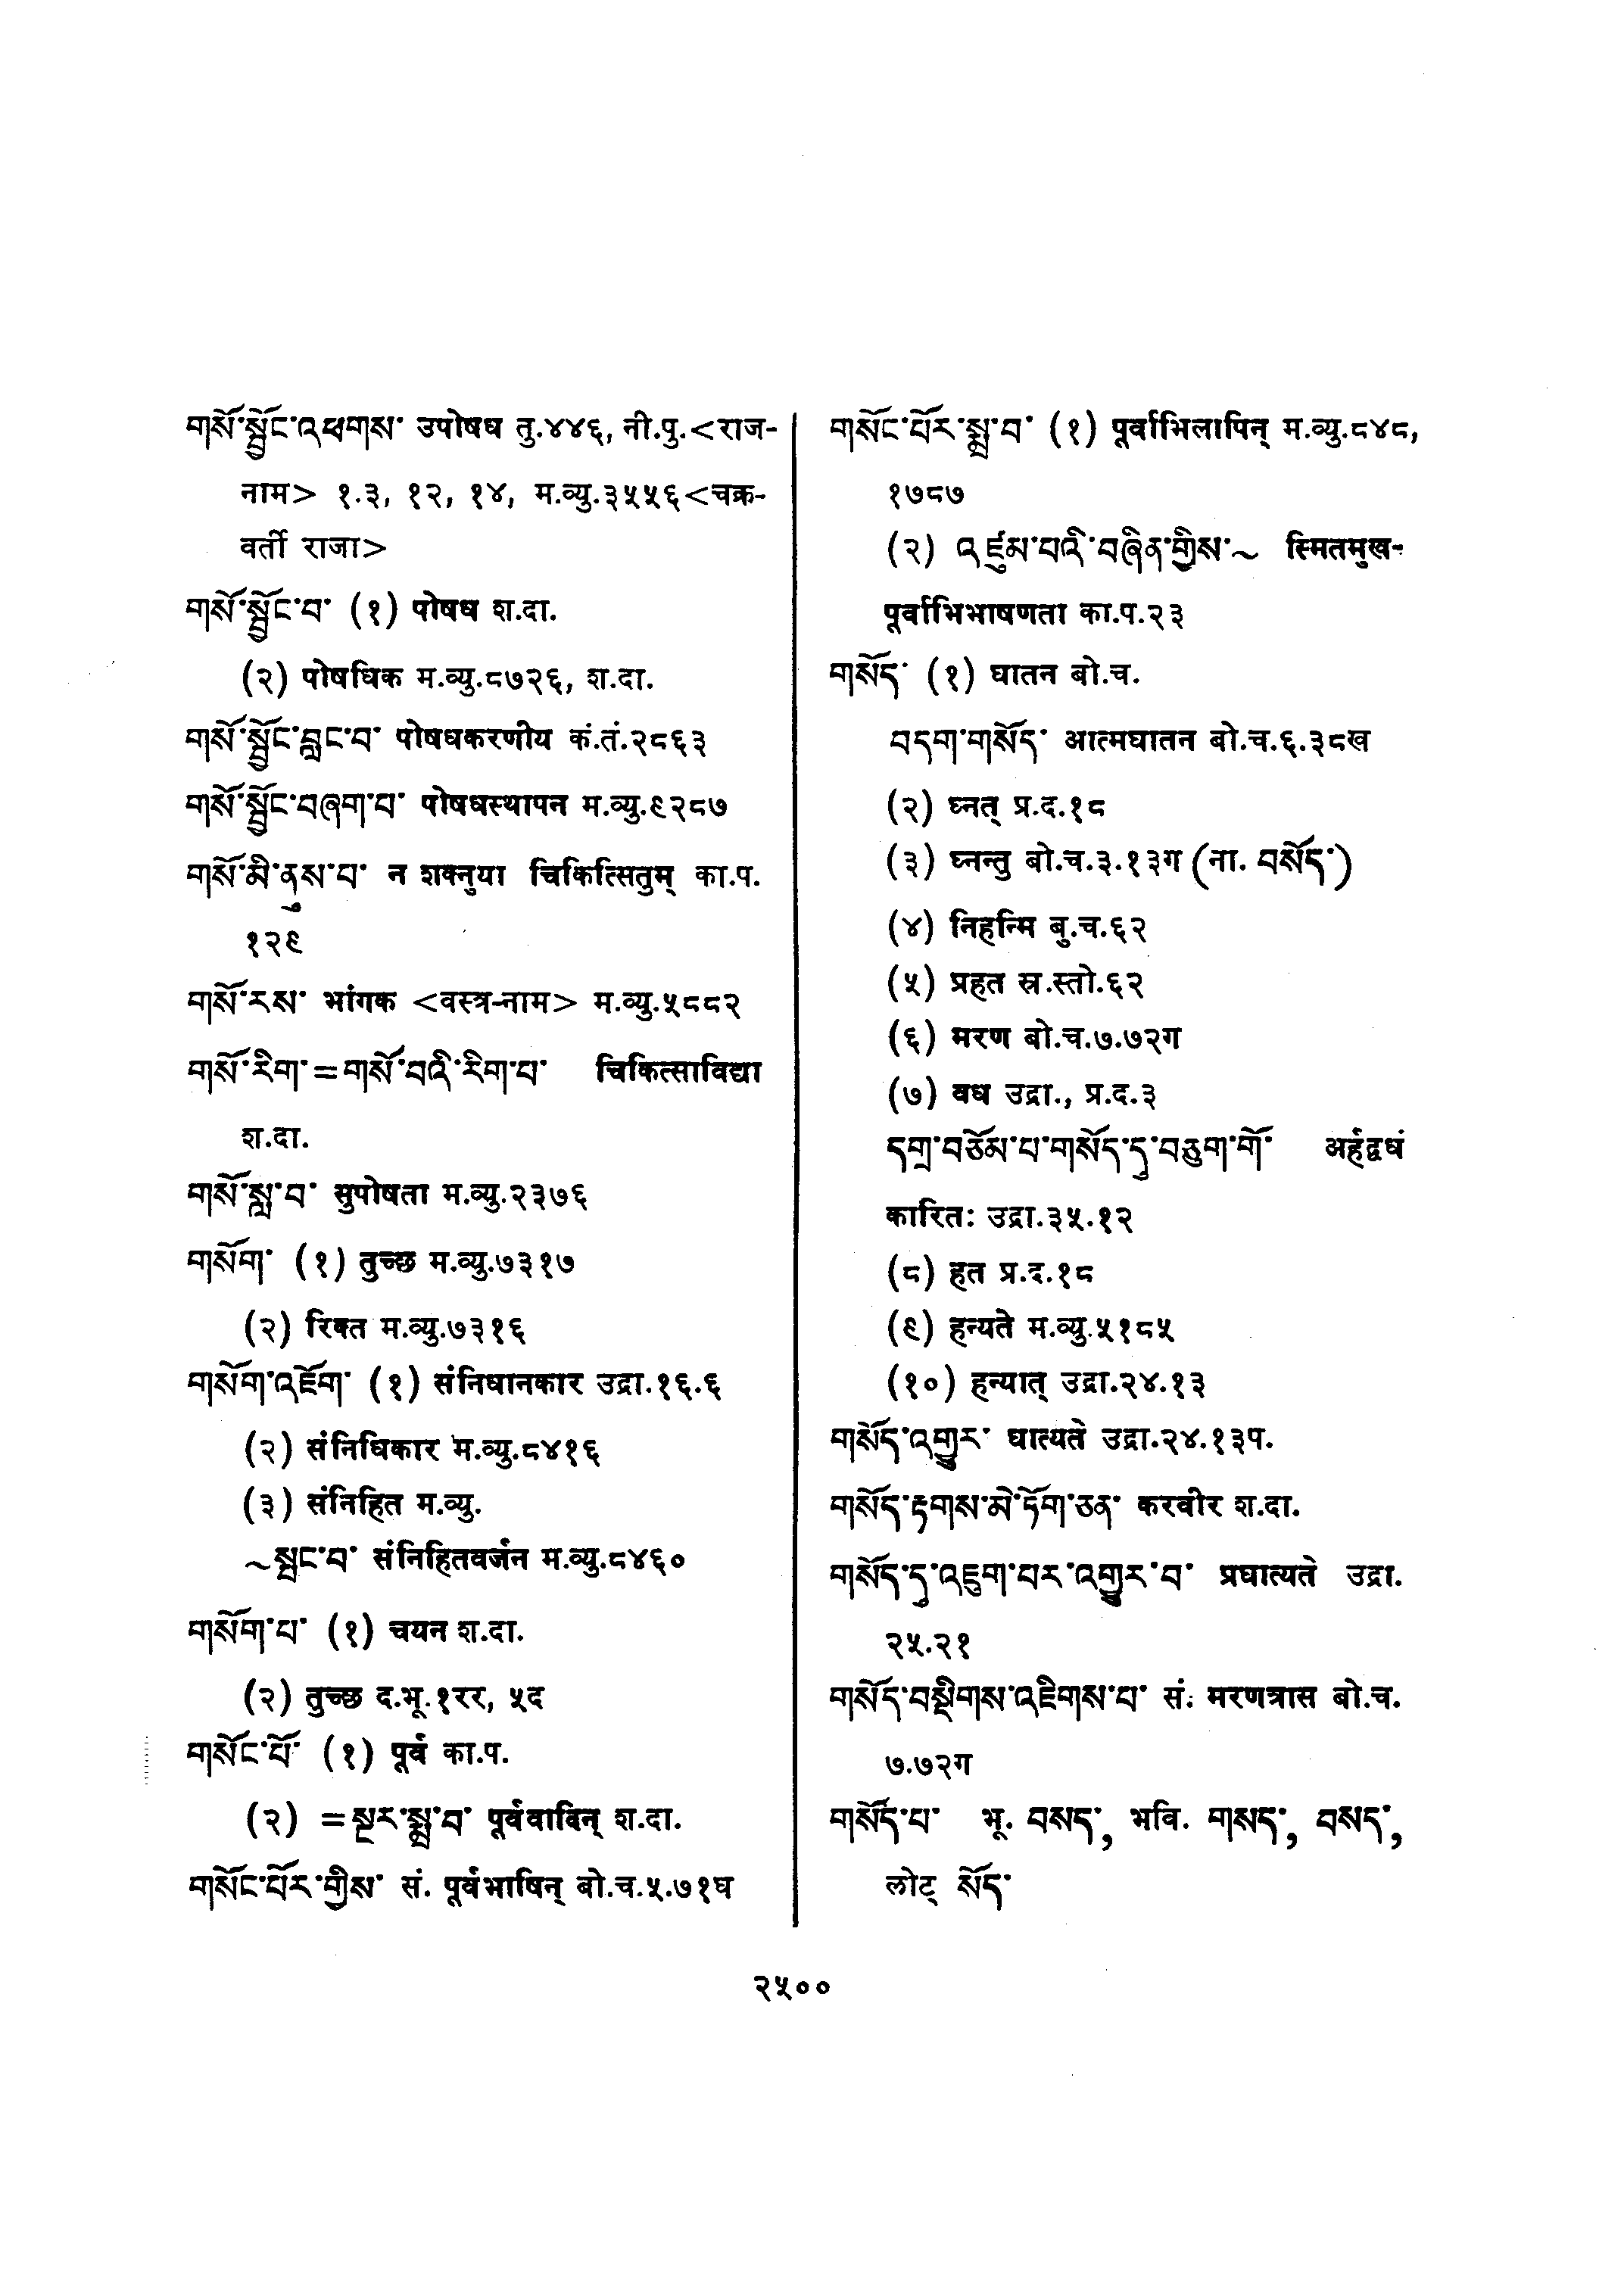 གསོ་སྦྱོང་འཕགས་ उपोषध तु.४४६, नी.पु.<राज-
नाम> १.३, १२, १४, म.व्यु.३५५६<चक्र-
वर्ती राजा>
གསོ་སྦྱོང་བ་ (१) पोषध श.दा.
(२) पोषधिक म.व्यु.८७२६, श.दा.
གསོ་སྦྱོང་བླང་བ་ पोषधकरणीय कं.तं.२८६३
གསོ་སྦྱོང་བཞག་པ་ पोषधस्थापन म.व्यु.९२८७
གསོ་མི་ནུས་པ་ न शक्नुया चिकित्सितुम् का.प.
१२९
གསོ་རས་ भांगक <वस्त्र-नाम> म.व्यु.५८८२
གསོ་རིག་=གསོ་བའི་རིག་པ་ चिकित्साविद्या
श.दा.
གསོ་སླ་བ་ सुपोषता म.व्यु.२३७६
གསོག་ (१) तुच्छ म.व्यु.७३१७
(२) रिक्त म.व्यु.७३१६
གསོག་འཇོག་ (१) संनिधानकार उद्रा.१६.६
(२) संनिधिकार म.व्यु.८४१६
(३) संनिहित म.व्यु.
~སྤང་བ་ संनिहितवर्जन म.व्यु.८४६०
གསོག་པ་ (१) चयन श.दा.
(२) तुच्छ द.भू.१रर, ५द
གསོང་པོ་ (१) पूर्व का.प.
(२) =སྔར་སྨྲ་བ་ पूर्ववादिन् श.दा.
གསོང་པོར་གྱིས་ सं. पूर्वभाषिन् बो.च.५.७१घ
གསོང་པོར་སྨྲ་བ་ (१) पूर्वाभिलापिन् म.व्यु.८४८,
१७८७
(२) འཛུམ་པའི་བཞིན་གྱིས་~ स्मितमुख-
पूर्वाभिभाषणता का.प.२३
གསོད་ (१) घातन बो.च.
བདག་གསོད་ आत्मघातन बो.च.६.३८ख
(२) घ्नत् प्र.द.१८
(३) घ्नन्तु बो.च.३.१३ग (ना. བསོད་)
(४) निहन्मि बु.च.६२
(५) प्रहत स्र.स्तो.६२
(६) मरण बो.च.७.७२ग
(७) वध उद्रा., प्र.द.३
དགྲ་བཅོམ་པ་གསོད་དུ་བཅུག་གོ་ अर्हद्वधं
कारितः उद्रा.३५.१२
(८) हत प्र.द.१८
(९) हन्यते म.व्यु.५१८५
(१०) हन्यात् उद्रा.२४.१३
གསོད་འགྱུར་ घात्यते उद्रा.२४.१३प.
གསོད་རྟགས་མེ་ཏོག་ཅན་ करवीर श.दा.
གསོད་དུ་འཇུག་པར་འགྱུར་བ་ प्रघात्यते उद्रा.
२५.२१
གསོད་བསྡིགས་འཇིགས་པ་ सं. मरणत्रास बो.च.
७.७२ग
གསོད་པ་ भू. བསད་, भवि. གསད་, བསད་,
लोट् སོད་
२५००